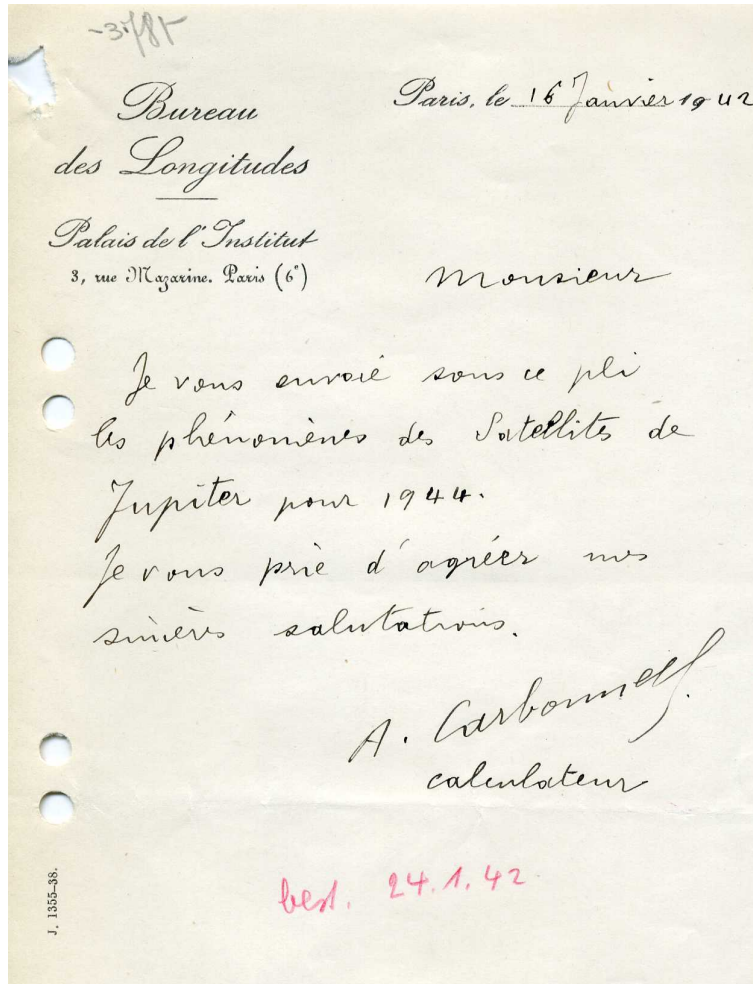 -3.781-
Bureau
des Longitudes
Palais de l'Institut
3, rue Mazarine. Paris (6e)
Paris, le 16 Janvier 1942
Monsieur
Je vous envoie sous ce pli
les phénomènes des Satellites de
Jupiter pour 1944.
Je vous prie d'agréer mes
sincères salutations.
A. Carbonnell
calculateur
best. 24.1.42
J. 1355-38.